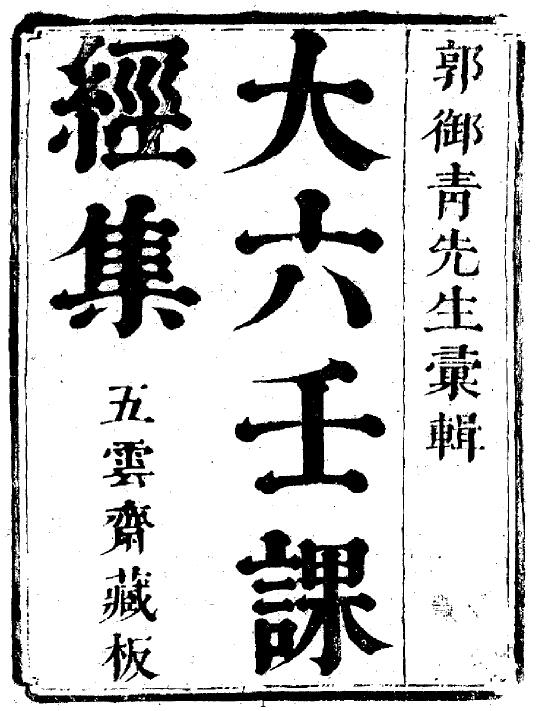 郭御青先生彚輯
大六壬課
經集
五雲齋藏板